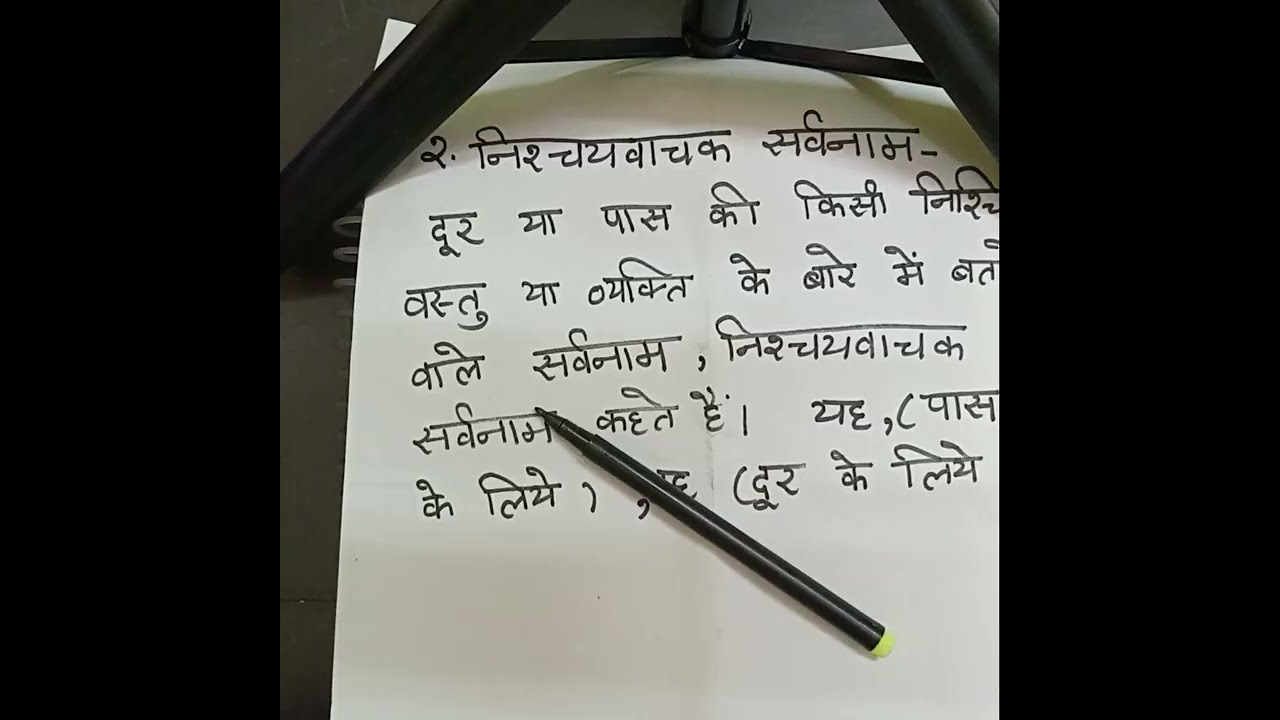 २. निश्चयवाचक सर्वनाम-
दूर या पास की किसी
वस्तु या व्यक्ति के बारे में
वाले सर्वनाम, निश्चयवाचक
सर्वनाम कहते हैं। यह,(पास
के लिये) , (दूर के लिये